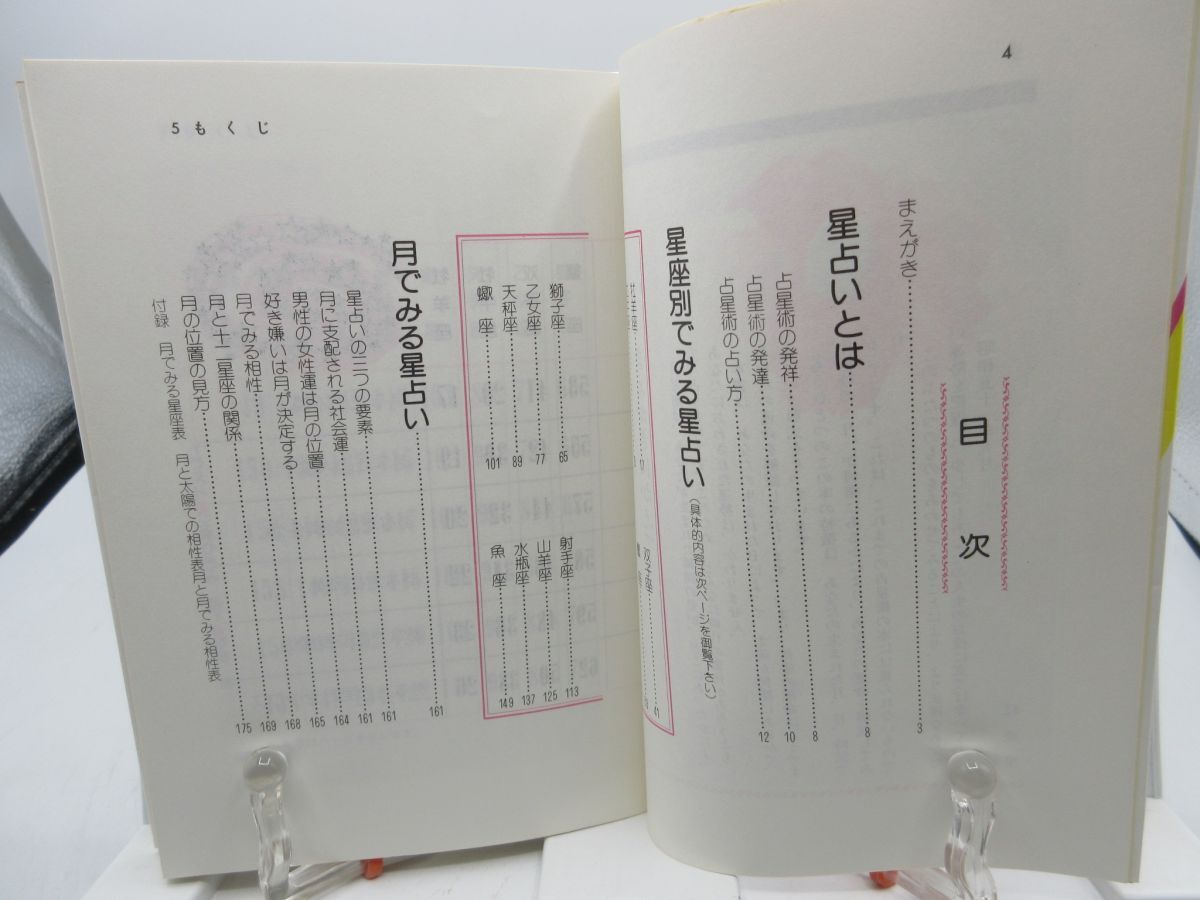 4
目次
まえがき……3
星占いとは……8
占星術の発祥……8
占星術の発達……10
占星術の占い方……12
星座別でみる星占い(具体的内容は次ページを御覧下さい)
双子座……41
5 もくじ
獅子座……65
乙女座……77
天秤座……89
蠍座……101
射手座……113
山羊座……125
水瓶座……137
魚座……149
月でみる星占い……161
星占いの三つの要素……161
月に支配される社会運……161
男性の女性運は月の位置……164
好き嫌いは月が決定する……165
月でみる相性……168
月と十二星座の関係……169
月の位置の見方……175
付録 月でみる星座表 月と太陽での相性表月と月でみる相性表